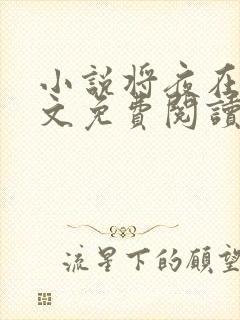 小說將夜在
文免費閱讀
流星下的願望